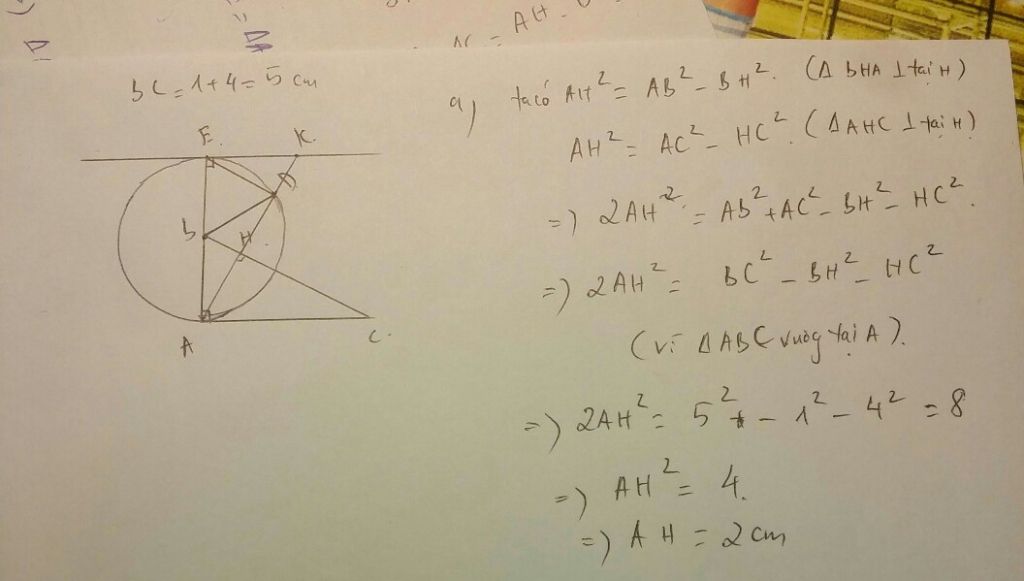 AH
AC =
BC = 1+4 = 5 cm
a, ta có AH² = AB² - BH². (Δ BHA ⊥ tại H)
AH² = AC² - HC². (Δ AHC ⊥ tại H)
=) 2AH² = AB² + AC² - BH² - HC².
=) 2AH² = BC² - BH² - HC²
(vì Δ ABC vuôg tại A).
=) 2AH² = 5² - 1² - 4² = 8
=) AH² = 4.
=) AH = 2 cm
E. K.
D
B H.
A C.